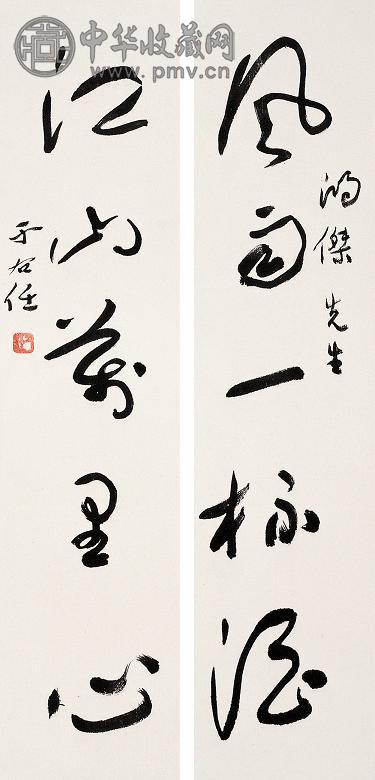 中华收藏网
www.pmv.cn
鸿傑先生
风雨一杯酒
江山萬里心
于右任